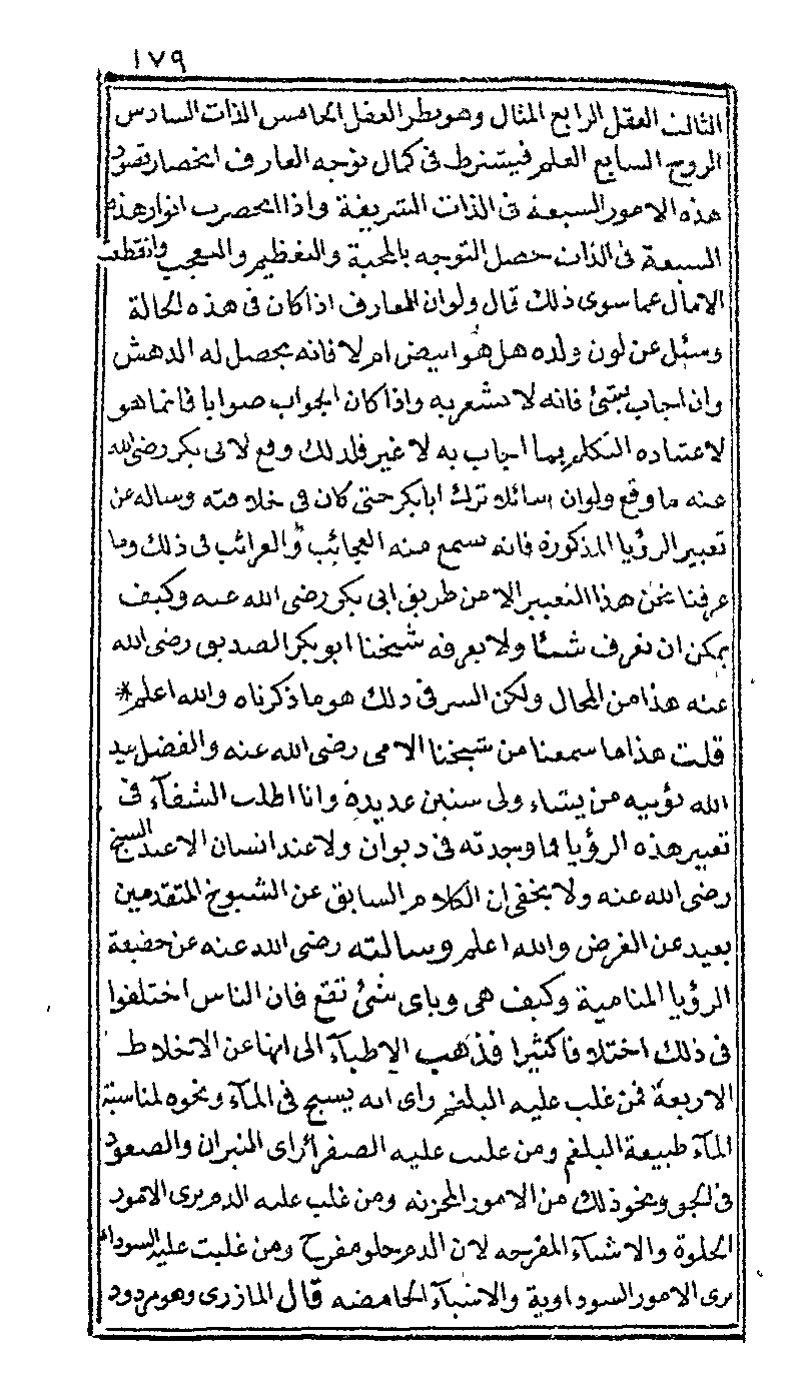 ١٧٩
الثالث العقل الرابع المثال وهو نظر العقل الخامس الذات السادس
الروح السابع العلم فيشترط في كمال توجه العارف انحصار تصور
هذه الامور السبعة في الذات الشريفة واذا انحصرت انوار هذه
السبعة في الذات حصل التوجه بالمحبة والتعظيم والتعجب وانقطعت
الامال عما سوى ذلك قال ولو ان العارف اذا كان في هذه الحالة
وسئل عن لون ولده هل هو ابيض ام لا فانه يحصل له الدهش
وان اجاب بشئ فانه لا يشعر به واذا كان الجواب صوابا فانما هو
لاعتياده التكلم بما اجاب به لا غير فلذلك وقع لابي بكر رضى الله
عنه ما وقع ولو ان سائلا ترك ابابكر حتى كان في خلافته وساله عن
تعبير الرؤيا المذكورة فانه يسمع منه العجائب والغرائب في ذلك وما
عرفنا نحن هذا التعبير الا من طريق ابى بكر رضى الله عنه وكيف
يمكن ان نعرف شيئا ولا يعرفه شيخنا ابو بكر الصديق رضى الله
عنه هذا من المحال ولكن السر في ذلك هو ما ذكرناه والله اعلم *
قلت هذا ما سمعنا من شيخنا الامى رضى الله عنه والفضل بيد
الله يؤتيه من يشاء ولى سنين عديدة وانا اطلب الشفآء في
تعبير هذه الرؤيا فما وجدته في ديوان ولا عند انسان الا عند الشيخ
رضى الله عنه ولا يخفى ان الكلام السابق عن الشيوخ المتقدمين
بعيد عن الغرض والله اعلم وسالته رضى الله عنه عن حقيقة
الرؤيا المنامية وكيف هى وباى شئ تقع فان الناس اختلفوا
في ذلك اختلافا كثيرا فذهب الاطبآء الى انها عن الاخلاط
الاربعة فمن غلب عليه البلغم راى انه يسبح في المآء ونحوه لمناسبة
المآء طبيعة البلغم ومن غلب عليه الصفرا راى النيران والصعود
في الجو ونحو ذلك من الامور المحزنه ومن غلب عليه الدم يرى الامور
الحلوة والاشيآء المفرحه لان الدم حلو مفرح ومن غلبت عليه السوداء
يرى الامور السوداوية والاشيآء الحامضه قال المازرى وهو مردود